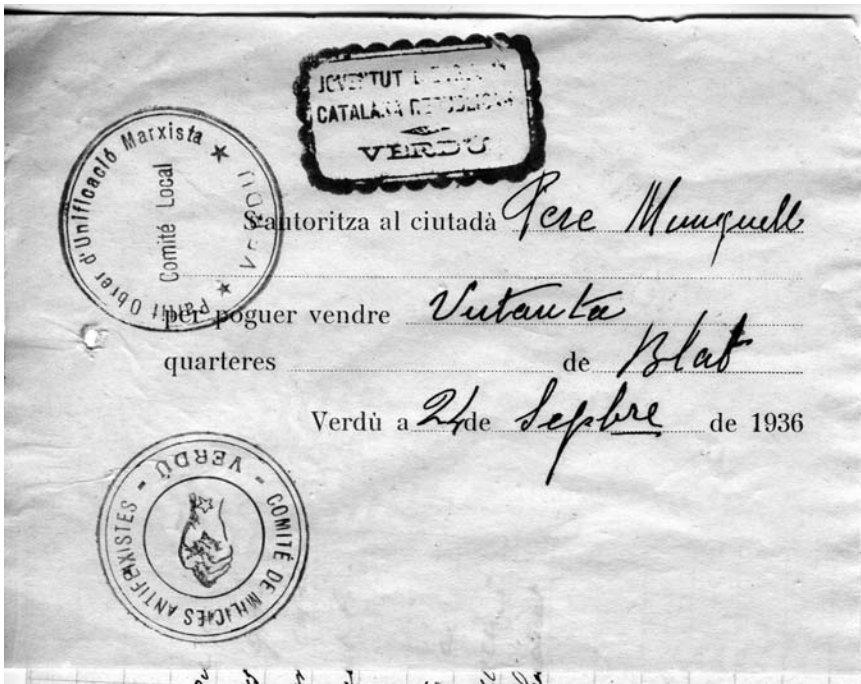 JOVENTUT
CATALANA REPUBLICANA
VERDÚ
Partit Obrer d'Unificació Marxista ★ VERDÚ ★
Comité Local
S'autoritza al ciutadà Pere Munguell
per poguer vendre Vutanta
quarteres de Blat
Verdù a 24 de Sepbre de 1936
COMITÉ DE MILICIES ANTIFEIXISTES - VERDÚ -